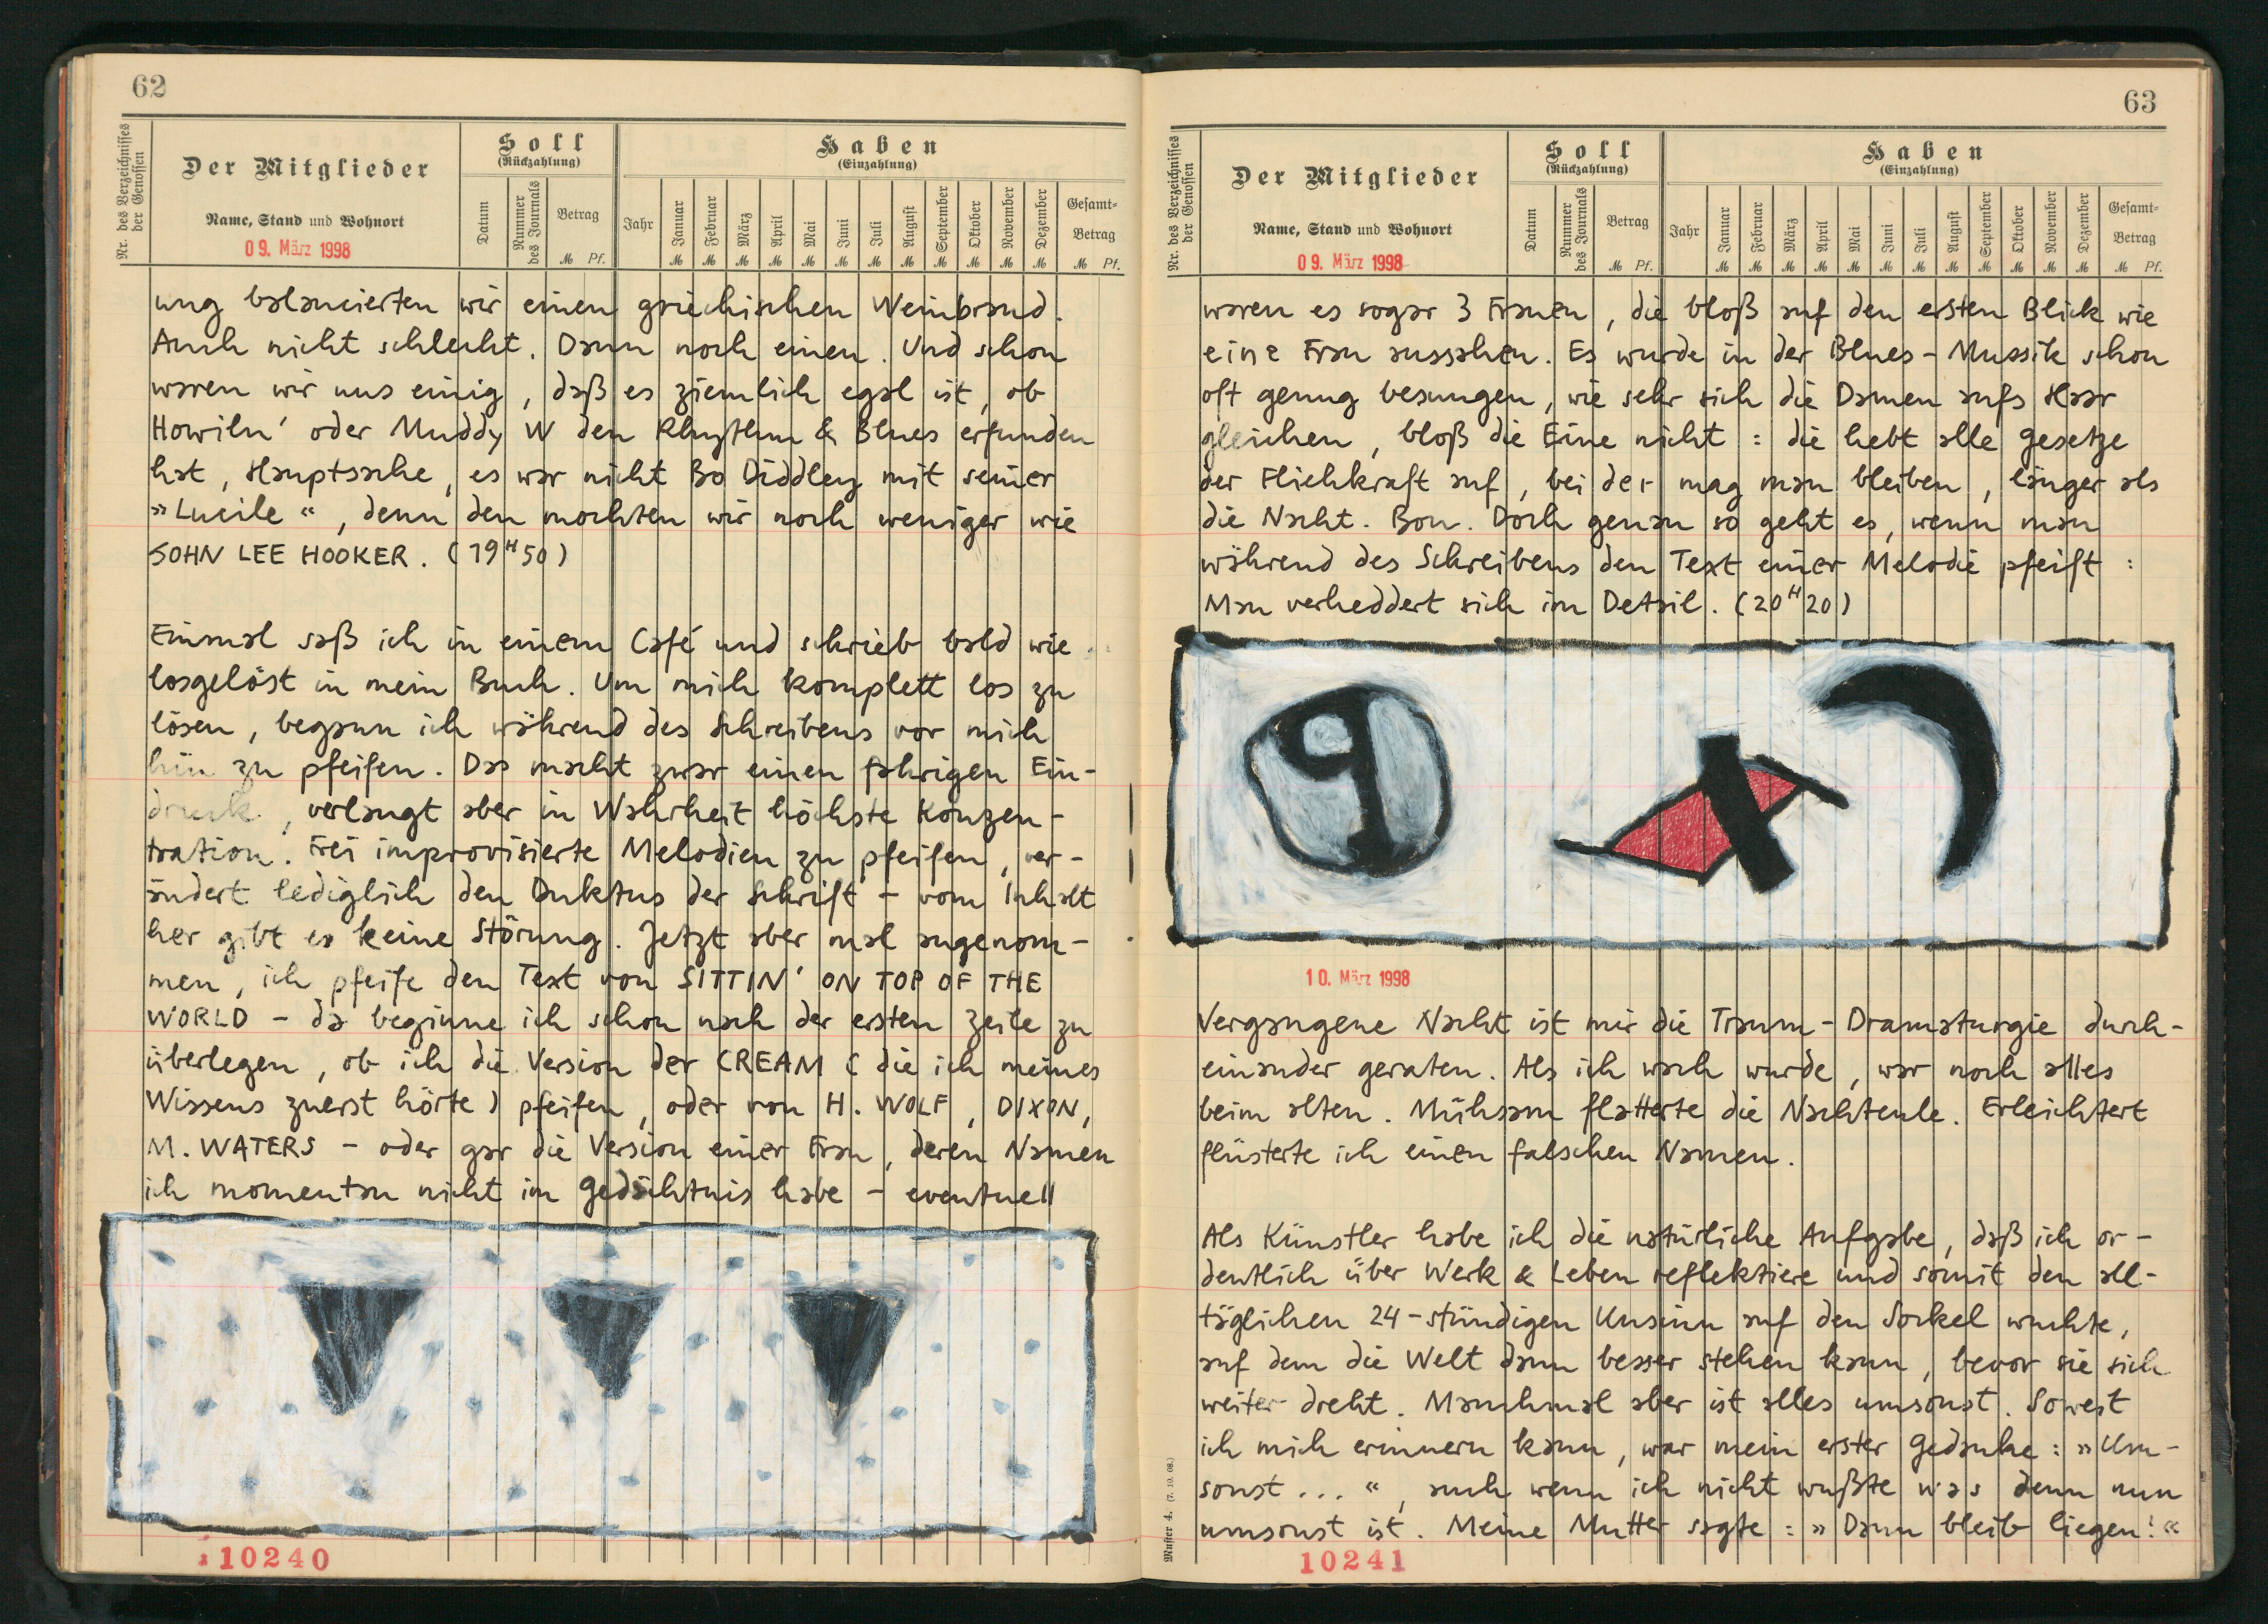 62
Nr. des Verzeichnisses der Genossen
Der Mitglieder
Name, Stand und Wohnort
09. März 1998
Soll
(Rückzahlung)
Datum
Nummer des Journals
Betrag
ℳ Pf.
Haben
(Einzahlung)
Jahr
Januar ℳ
Februar ℳ
März ℳ
April ℳ
Mai ℳ
Juni ℳ
Juli ℳ
August ℳ
September ℳ
Oktober ℳ
November ℳ
Dezember ℳ
Gesamt-
Betrag
ℳ Pf.
ung balancierten wir einen griechischen Weinbrand.
Auch nicht schlecht. Dann noch einen. Und schon
waren wir uns einig, daß es ziemlich egal ist, ob
Howiln' oder Muddy W den Rhythm & Blues erfunden
hat, Hauptsache, es war nicht Bo Diddley mit seiner
»Lucile«, denn den mochten wir noch weniger wie
JOHN LEE HOOKER. (19H50)
Einmal saß ich in einem Café und schrieb bald wie
losgelöst in mein Buch. Um mich komplett los zu
lösen, begann ich während des Schreibens vor mich
hin zu pfeifen. Das macht zwar einen fahrigen Ein-
druck, verlangt aber in Wahrheit höchste Konzen-
tration. Frei improvisierte Melodien zu pfeifen, ver-
ändert lediglich den Duktus der Schrift - vom Inhalt
her gibt es keine Störung. Jetzt aber mal angenom-
men, ich pfeife den Text von SITTIN' ON TOP OF THE
WORLD - da beginne ich schon nach der ersten Zeile zu
überlegen, ob ich die Version der CREAM (die ich meines
Wissens zuerst hörte) pfeifen, oder von H. WOLF, DIXON,
M. WATERS - oder gar die Version einer Frau, deren Namen
ich momentan nicht im Gedächtnis habe - eventuell
10240
63
Nr. des Verzeichnisses der Genossen
Der Mitglieder
Name, Stand und Wohnort
09. März 1998
Soll
(Rückzahlung)
Datum
Nummer des Journals
Betrag
ℳ Pf.
Haben
(Einzahlung)
Jahr
Januar ℳ
Februar ℳ
März ℳ
April ℳ
Mai ℳ
Juni ℳ
Juli ℳ
August ℳ
September ℳ
Oktober ℳ
November ℳ
Dezember ℳ
Gesamt-
Betrag
ℳ Pf.
waren es sogar 3 Frauen, die bloß auf den ersten Blick wie
eine Frau aussahen. Es wurde in der Blues-Mussik schon
oft genug besungen, wie sehr sich die Damen aufs Haar
gleichen, bloß die Eine nicht: die hebt alle Gesetze
der Fliehkraft auf, bei der mag man bleiben, länger als
die Nacht. Bon. Doch genau so geht es, wenn man
während des Schreibens den Text einer Melodie pfeift:
Man verheddert sich im Detail. (20H20)
10. März 1998
Vergangene Nacht ist mir die Traum-Dramaturgie durch-
einander geraten. Als ich wach wurde, war noch alles
beim alten. Mühsam flatterte die Nachteule. Erleichtert
flüsterte ich einen falschen Namen.
Als Künstler habe ich die natürliche Aufgabe, daß ich or-
dentlich über Werk & Leben reflektiere und somit den all-
täglichen 24-stündigen Unsinn auf den Sockel wuchte,
auf dem die Welt dann besser stehen kann, bevor sie sich
weiter dreht. Manchmal aber ist alles umsonst. Soweit
ich mich erinnern kann, war mein erster Gedanke: »Um-
sonst...«, auch wenn ich nicht wußte was denn nun
umsonst ist. Meine Mutter sagte: »Dann bleib liegen!«
Muster 4. (7. 10. 08.)
10241